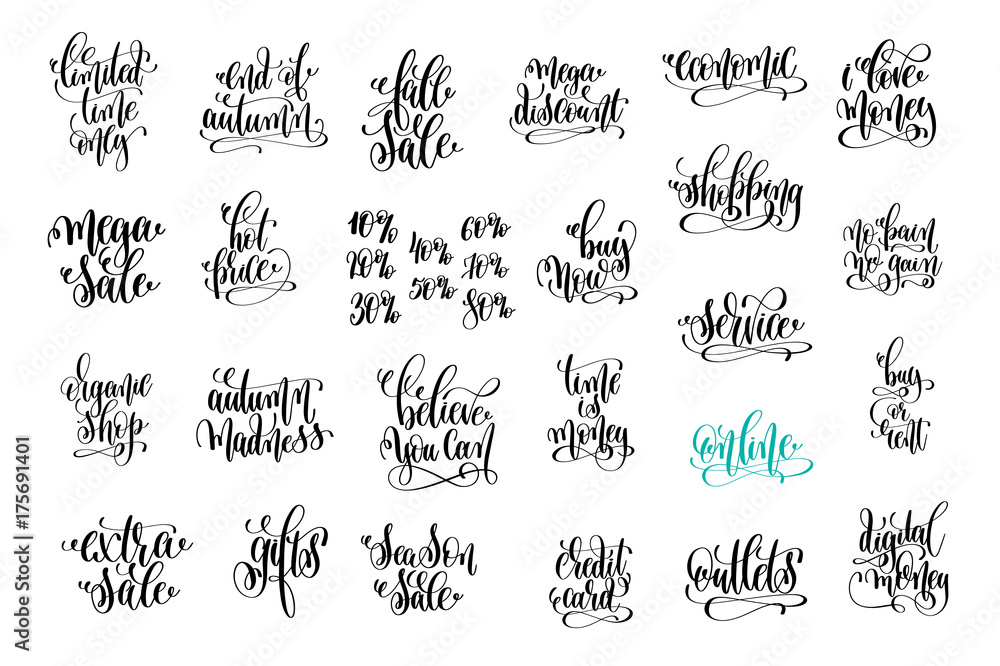 limited
time
only
end of
autumn
fall
sale
mega
discount
economic
i love
money
shopping
mega
sale
hot
price
10%
20%
30%
40%
50%
60%
70%
80%
buy
now
no pain
no gain
service
organic
shop
autumn
madness
believe
you can
time
is
money
online
buy
or
rent
extra
sale
gifts
season
sale
credit
card
outlets
digital
money
Adobe Stock | #175691401